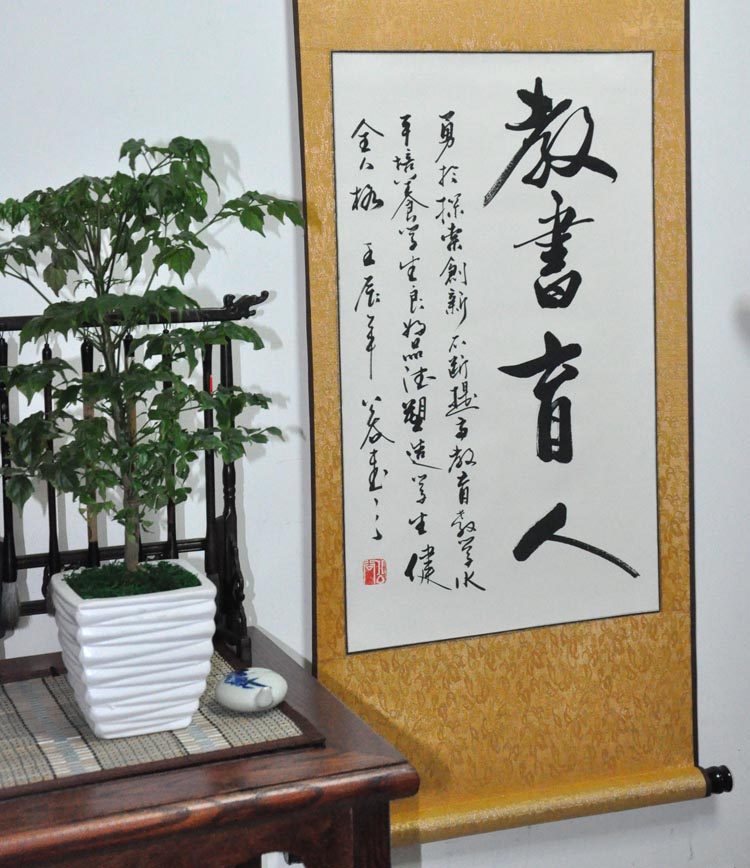 教書育人
勇於探索創新不斷提高教育教學水
平培養學生良好品德塑造學生健
全人格 壬辰年